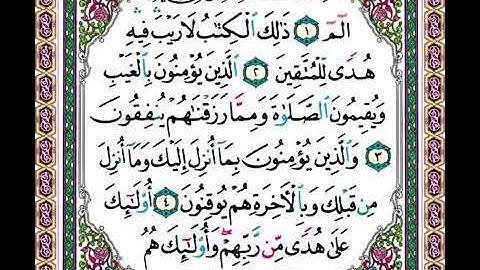 الٓمٓ ١ ذَٰلِكَ ٱلۡكِتَٰبُ لَا رَيۡبَ فِيهِ
هُدٗى لِّلۡمُتَّقِينَ ٢ ٱلَّذِينَ يُؤۡمِنُونَ بِٱلۡغَيۡبِ
وَيُقِيمُونَ ٱلصَّلَوٰةَ وَمِمَّا رَزَقۡنَٰهُمۡ يُنفِقُونَ
٣ وَٱلَّذِينَ يُؤۡمِنُونَ بِمَآ أُنزِلَ إِلَيۡكَ وَمَآ أُنزِلَ
مِن قَبۡلِكَ وَبِٱلۡأٓخِرَةِ هُمۡ يُوقِنُونَ ٤ أُوْلَٰٓئِكَ
عَلَىٰ هُدٗى مِّن رَّبِّهِمۡ وَأُوْلَٰٓئِكَ هُمُ